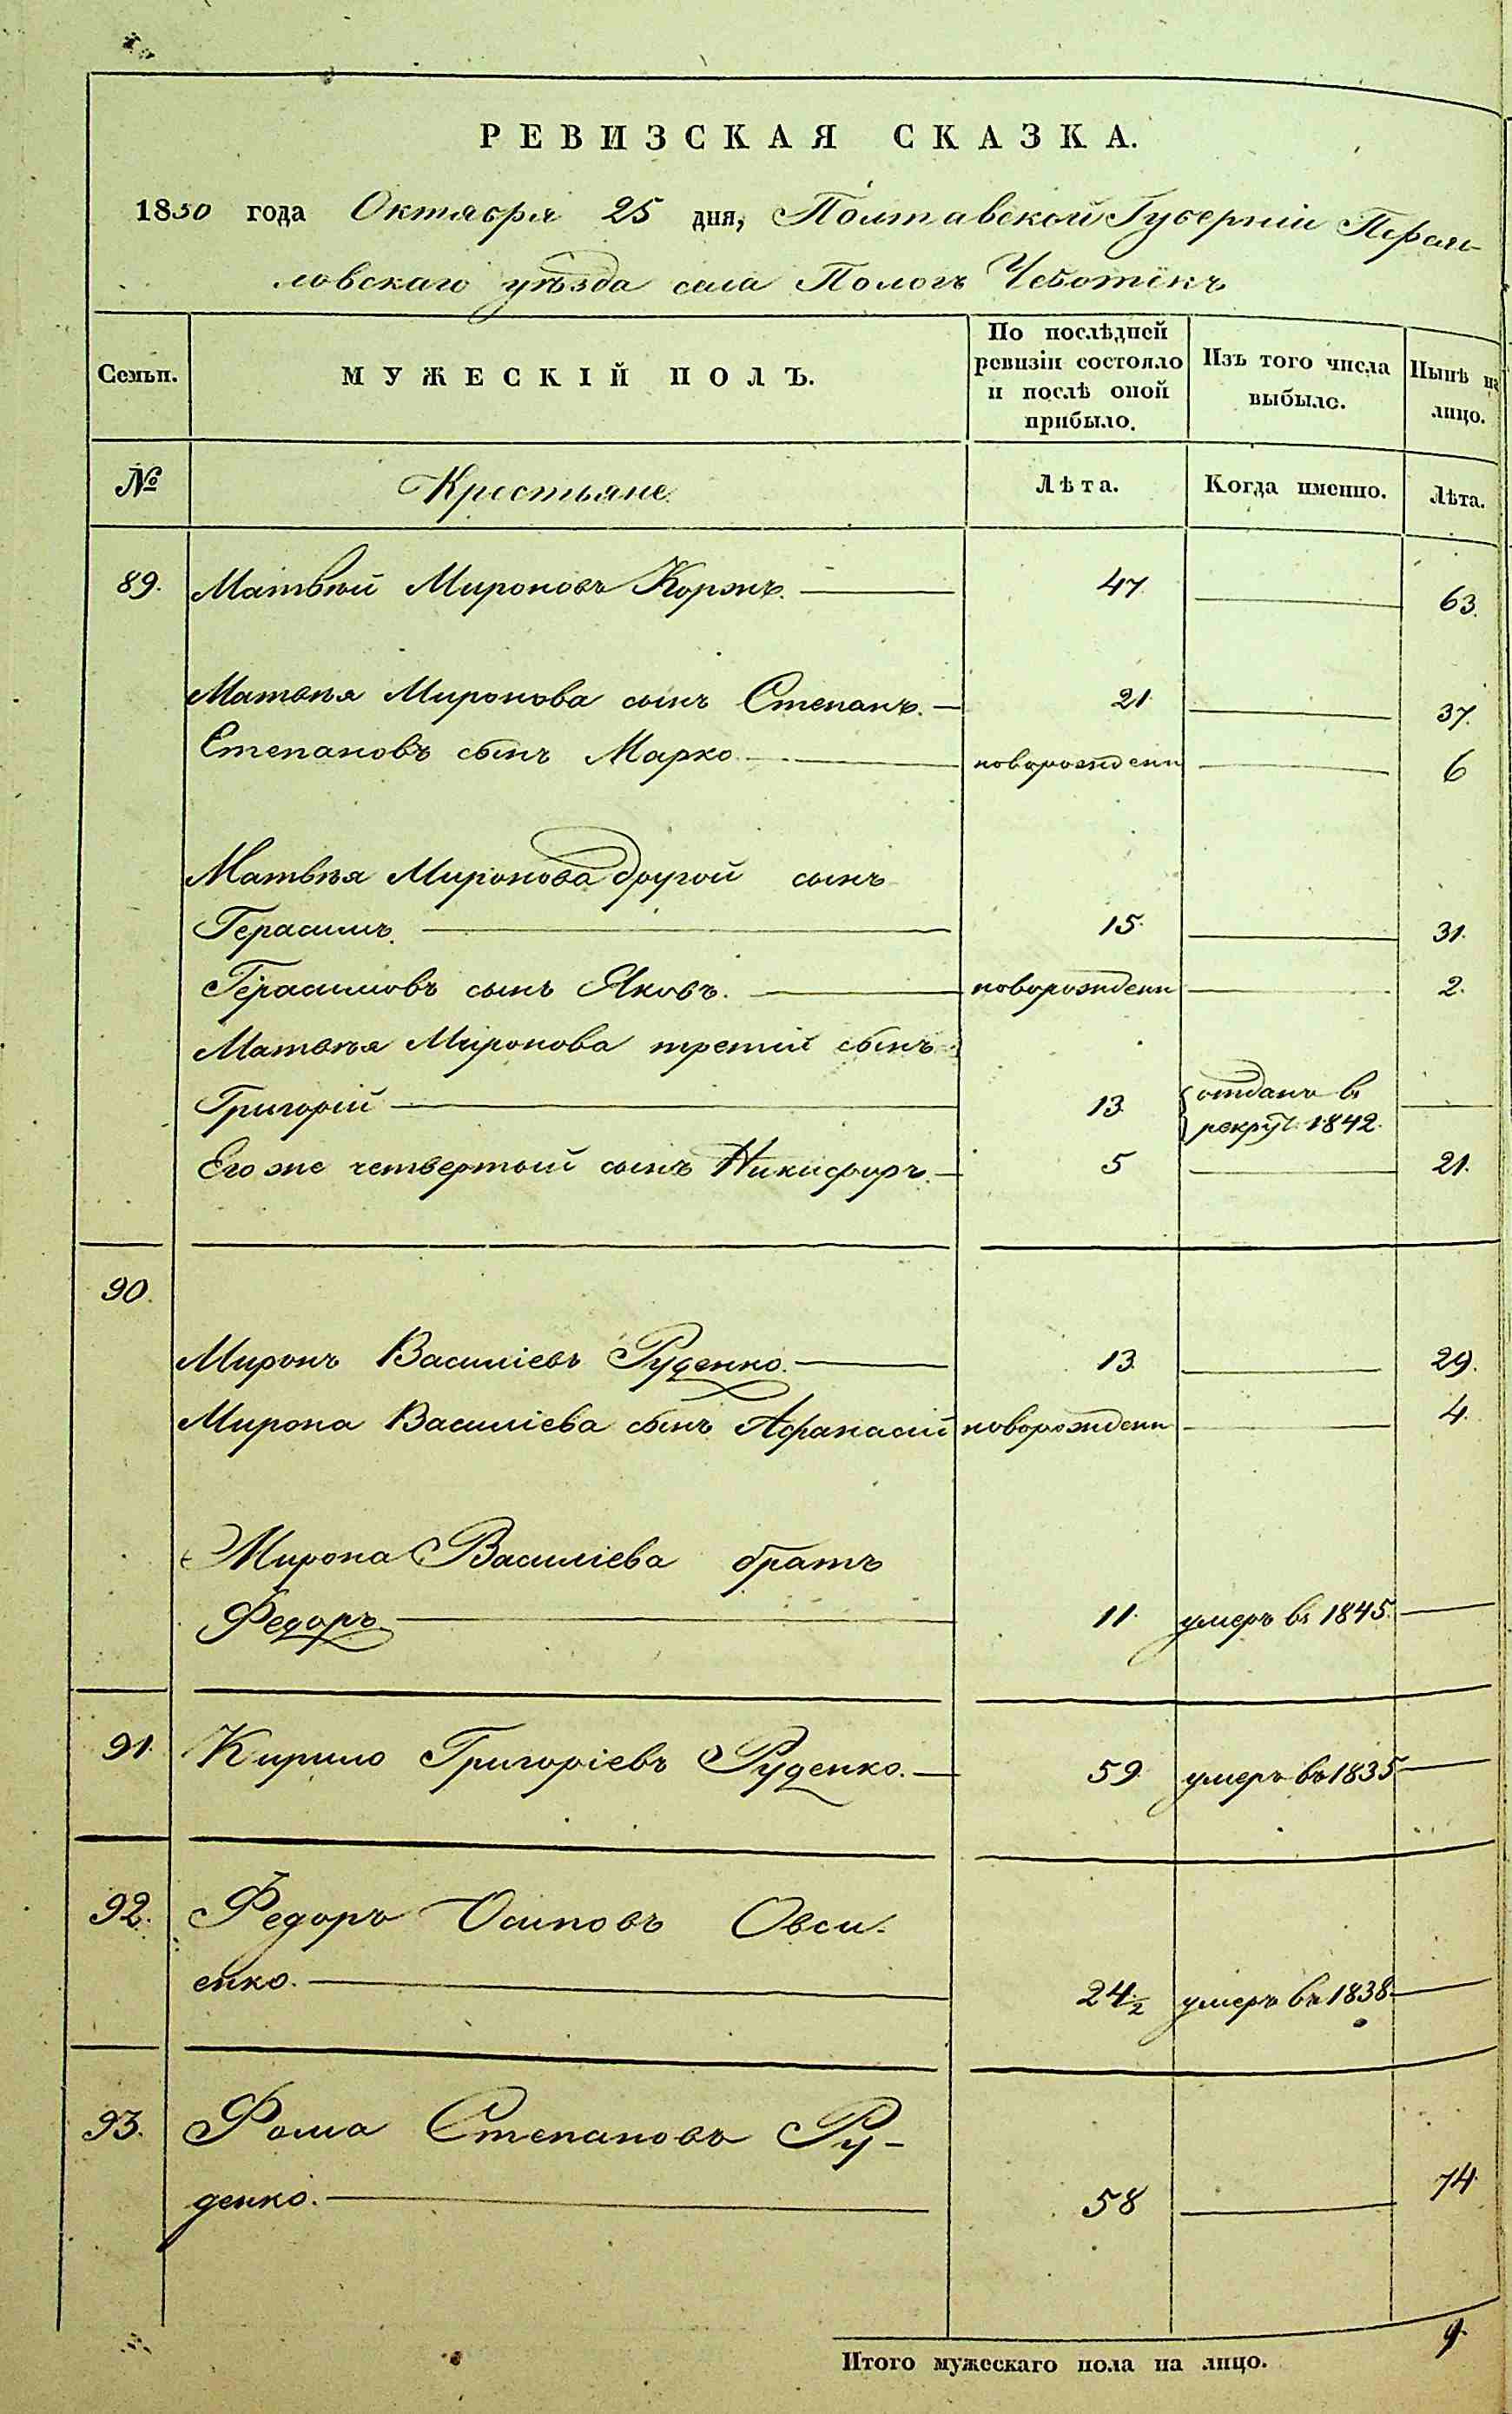 РЕВИЗСКАЯ СКАЗКА.
1850 года Октября 25 дня, Полтавской Губерніи Переяс-
ловскаго уѣзда села Пологъ Чеботёкъ
Семьи. МУЖЕСКІЙ ПОЛЪ. По послѣдней ревизіи состояло и послѣ оной прибыло. Изъ того числа выбыло. Нынѣ на лицо.
№ Крестьяне. Лѣта. Когда именно. Лѣта.
89. Матвѣй Мироновъ Коржъ. 47 63.
Матвѣя Миронова сынъ Степанъ. 21. 37.
Степановъ сынъ Марко новорожденн 6
Матвѣя Миронова другой сынъ
Герасимъ. 15. 31.
Герасимовъ сынъ Яковъ. новорожденн 2.
Матвѣя Миронова третій сынъ
Григорій 13. отданъ въ рекрут. 1842.
Его же четвертый сынъ Никифоръ. 5 21.
90.
Миронъ Василіевъ Руденко. 13 29.
Мирона Василіева сынъ Афанасій новорожденн 4.
Мирона Василіева братъ
Федоръ 11. умеръ въ 1845.
91. Кирило Григоріевъ Руденко. 59. умеръ въ 1835
92. Федоръ Осиповъ Овси-
енко. 24½ умеръ въ 1838
93. Фома Степановъ Ру-
денко. 58 74.
Итого мужескаго пола на лицо. 9.